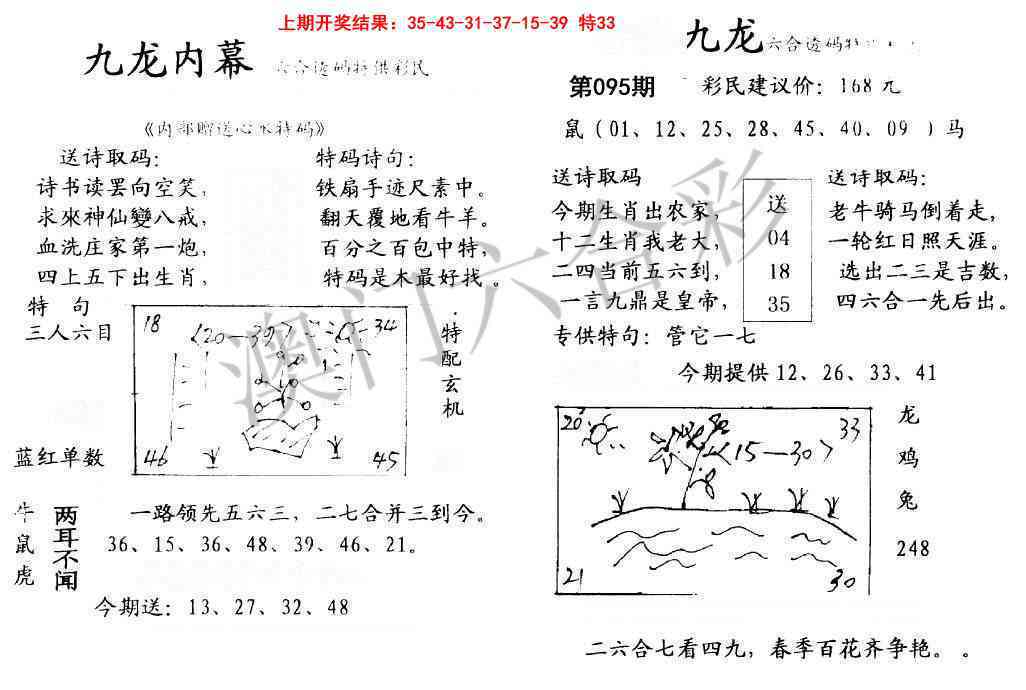 上期开奖结果：35-43-31-37-15-39 特33
九龙内幕 六合透码特供彩民
《内部赠送心水特码》
送诗取码：
诗书读罢向空笑，
求來神仙變八戒，
血洗庄家第一炮，
四上五下出生肖，
特码诗句：
铁扇手迹尺素中。
翻天覆地看牛羊。
百分之百包中特，
特码是木最好找。
特 句
三人六目
蓝红单数
18 <20—39> 34
46 45
特配玄机
牛
鼠
虎
两耳不闻
一路领先五六三，二七合并三到今。
36、15、36、48、39、46、21。
今期送：13、27、32、48
九龙 六合透码特
第095期 彩民建议价：168元
鼠（01、12、25、28、45、40、09 ）马
送诗取码
今期生肖出农家，
十二生肖我老大，
二四当前五六到，
一言九鼎是皇帝，
送
04
18
35
送诗取码：
老牛骑马倒着走，
一轮红日照天涯。
选出二三是吉数，
四六合一先后出。
专供特句：管它一七
今期提供 12、26、33、41
20 33
<15—30>
21 30
龙
鸡
兔
248
二六合七看四九，春季百花齐争艳。。
澳门六合彩